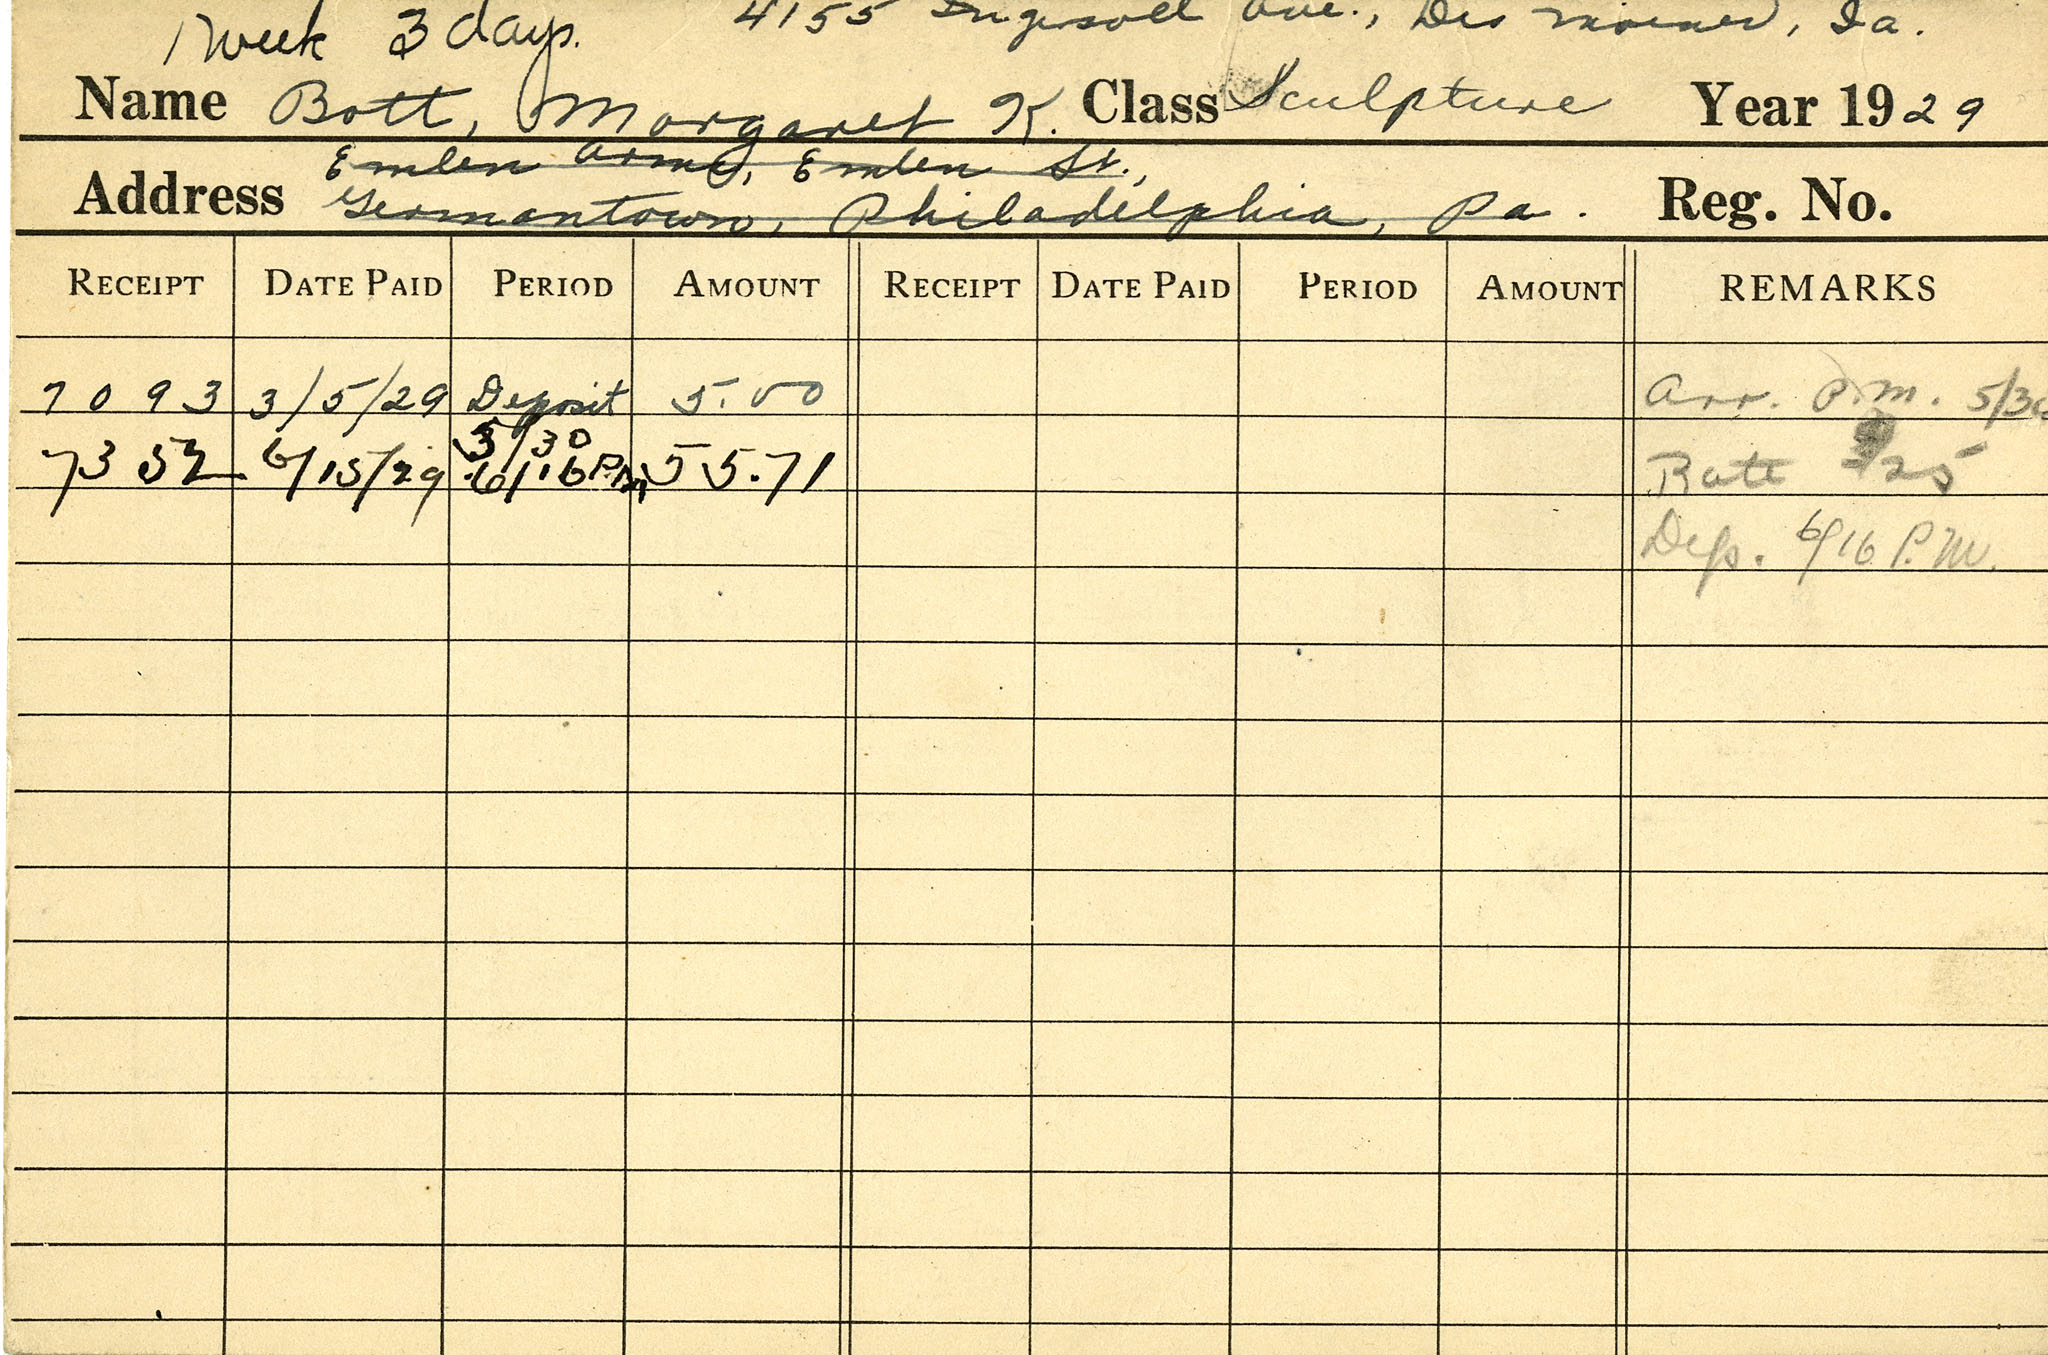 1 week 3 days. 4155 Ingersoll Ave., Des Moines, Ia.
Name Bott, Margaret K. Class Sculpture Year 1929
Emlen Arms, Emlen St.,
Address Germantown, Philadelphia, Pa. Reg. No.
RECEIPT DATE PAID PERIOD AMOUNT RECEIPT DATE PAID PERIOD AMOUNT REMARKS
7093 3/5/29 Deposit 5.00 Arr. P.M. 5/30
5/30
7352 6/15/29 6/16 P.M. 55.71 Rate 25
Dep. 6/16 P.M.